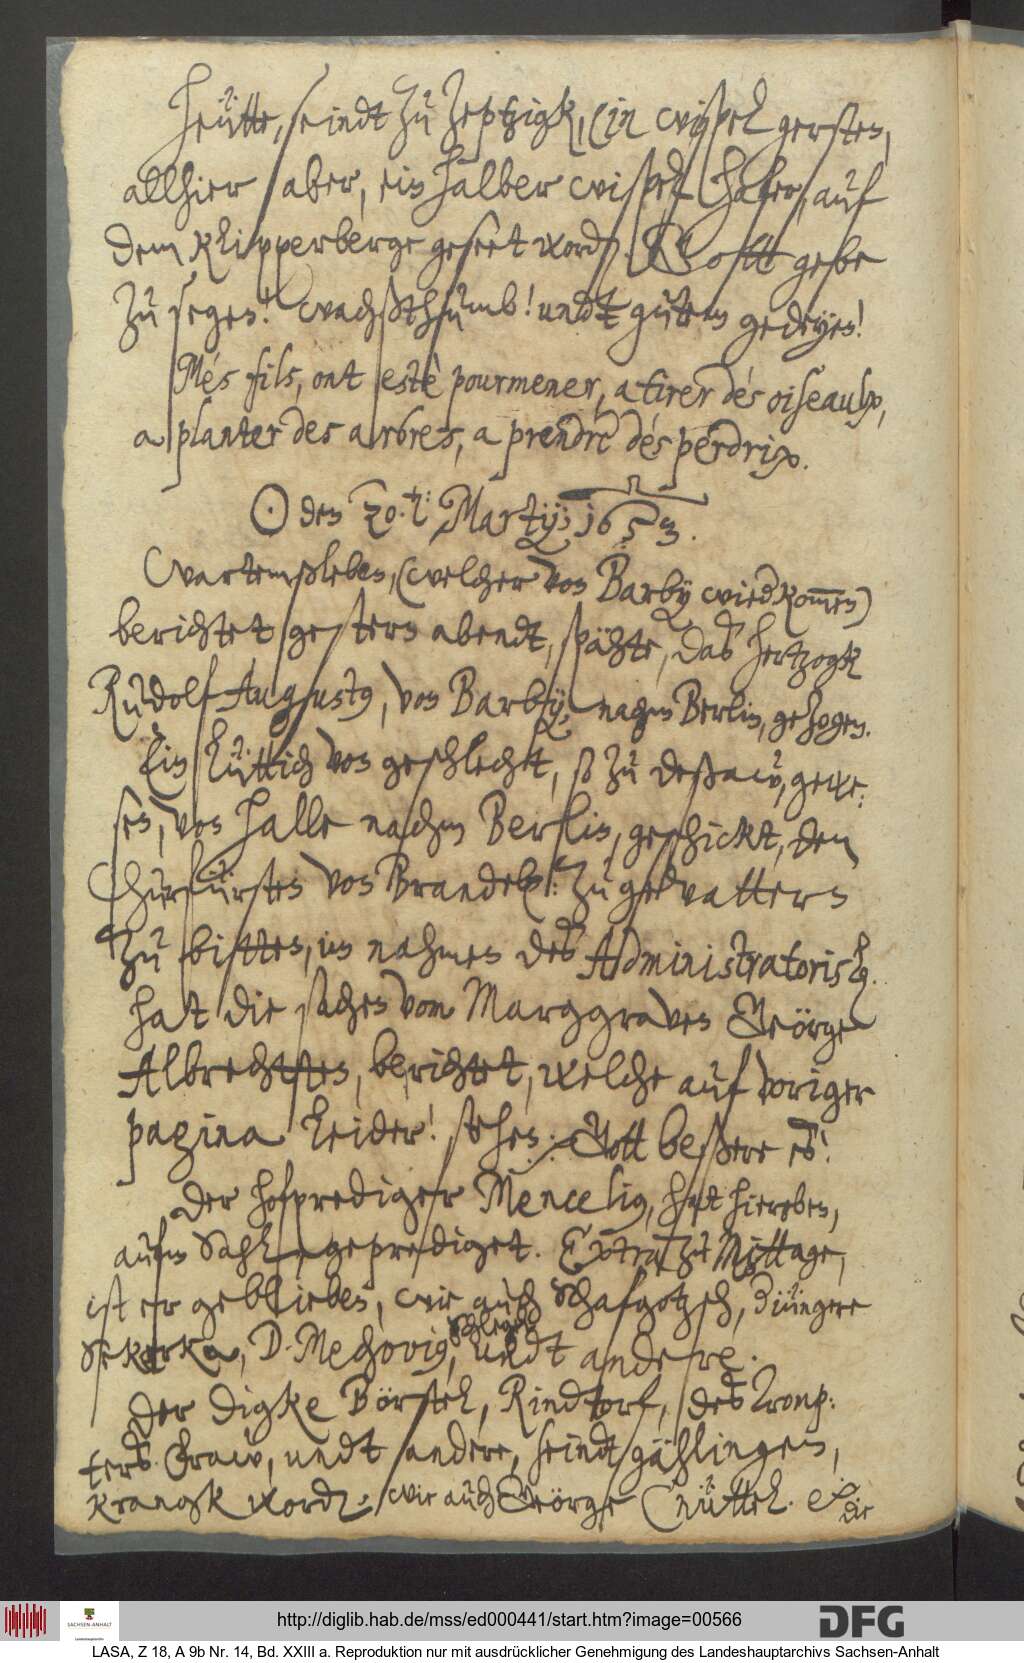 Heütte, seindt zu Zeptzigk, ein wispel gersten,
allhier aber, ein halber wispel hafer, auf
dem Klipperberge geseet word(en). Gott gebe
zu segen! wachßthumb! undt gutem gedeyen!
Més fils, ont estè pourmener, a tirer dés oiseaulx,
a planter des arbres, a prendre dés perdrix.
☉ den 20.t: Martij; 1653.
Wartemßleben, (welcher von Barby wied(er) kommen)
berichtet gestern abendt, spähte, das hertzogk
Rudolf Augustus, von Barby, nachm Berlin, gezogen.
Ein Lüttich von geschlecht, so zu Deßaw, gewe¬
sen, von Halle nachm Berlin, geschickt, den
Churfürsten von Brandeb: zu gevattern
zu bitten, im nahmen des Administratoris,
hat die sachen vom Marggraven Geörge
Albrechtten, berichtet, welche auf voriger
pagina leider! stehen. Gott beßere es!
Der hofprediger Mencelius, hat hieroben,
aufm Sahl, geprediget. Extra zu Mittage,
ist er gebliebe(n), wie auch Schafgotzsch, Jüngere
Sekerka, D. Mechovius, Schlegel undt andere.
Der digke Börstel, Rindtorf, des Tromp:
ters fraw, undt andere, seindt gählingen,
krangk word(en). wie auch Geörge Knüttel. et(c)
die
http://diglib.hab.de/mss/ed000441/start.htm?image=00566
SACHSEN-ANHALT
DFG
LASA, Z 18, A 9b Nr. 14, Bd. XXIII a. Reproduktion nur mit ausdrücklicher Genehmigung des Landeshauptarchivs Sachsen-Anhalt